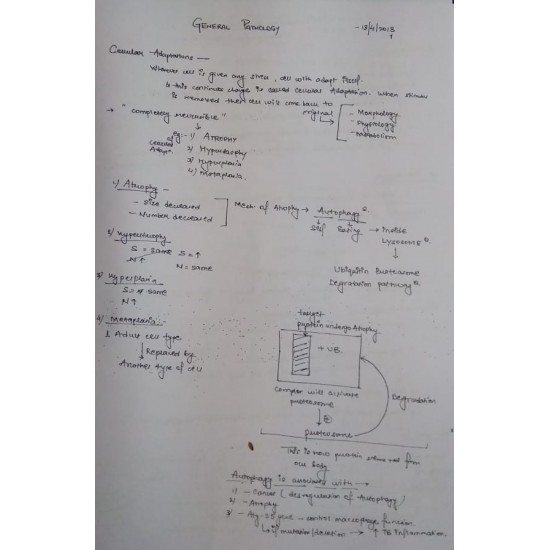 GENERAL PATHOLOGY
Cellular Adaptations —
Whenever cell is given any stress, cell will adapt itself.
& this continue change is called Cellular Adaptation. When stimulus
is removed then cell will come back to original
— Morphology
— Physiology
— Metabolism
→ "completely reversible"
eg:- 1) ATROPHY
2) Hypertrophy
3) Hyperplasia
4) Metaplasia.
of Cellular Adapn.
1) Atrophy —
— Size decreased
— Number decreased
Mech. of Atrophy → Autophagy
Self Eating → inside
Lysosome
Ubiquitin Proteasome
Degradation pathway
2) Hypertrophy
S = same S = ↑
N↑ N = same
3) Hyperplasia
S = same
N↑
4) Metaplasia —
1 Adult cell type
Replaced by
Another type of cell
target
protein undergo Atrophy
+ UB.
Complex will activate
proteasome
⊕
proteasome
Degradation
This is how protein removed from
our body
Autophagy is associated with →
1) — Cancer (desregulation of Autophagy)
2) — Atrophy
— gene — control macrophage function.
Loss/mutation/ → ↑ inflammation.